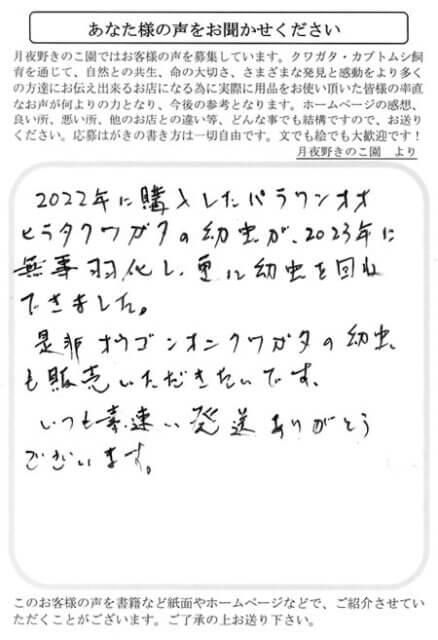 あなた様の声をお聞かせください
月夜野きのこ園ではお客様の声を募集しています。クワガタ・カブトムシ飼
育を通じて、自然との共生、命の大切さ、さまざまな発見と感動をより多く
の方達にお伝え出来るお店になる為に実際に用品をお使い頂いた皆様の率直
なお声が何よりの力となり、今後の参考となります。ホームページの感想、
良い所、悪い所、他のお店との違い等、どんな事でも結構ですので、お送り
ください。応募はがきの書き方は一切自由です。文でも絵でも大歓迎です！
月夜野きのこ園　より
2022年に購入したパラワンオオ
ヒラタクワガタの幼虫が、2023年に
無事羽化し、更に幼虫を回収
できました。
是非オウゴンオニクワガタの幼虫
も販売いただきたいです、
いつも素速い発送ありがとう
ございます。
このお客様の声を書籍など紙面やホームページなどで、ご紹介させてい
ただくことがございます。ご了承の上お送り下さい。